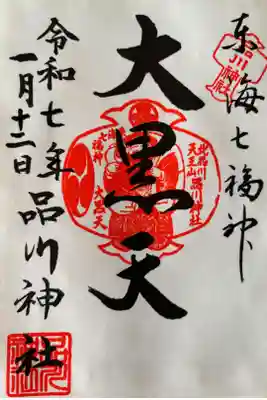 東海七福神
品川神社
大黒天
北品川
天王山
品川神社
七福神
大黒天
令和七年
一月十二日
品川神社